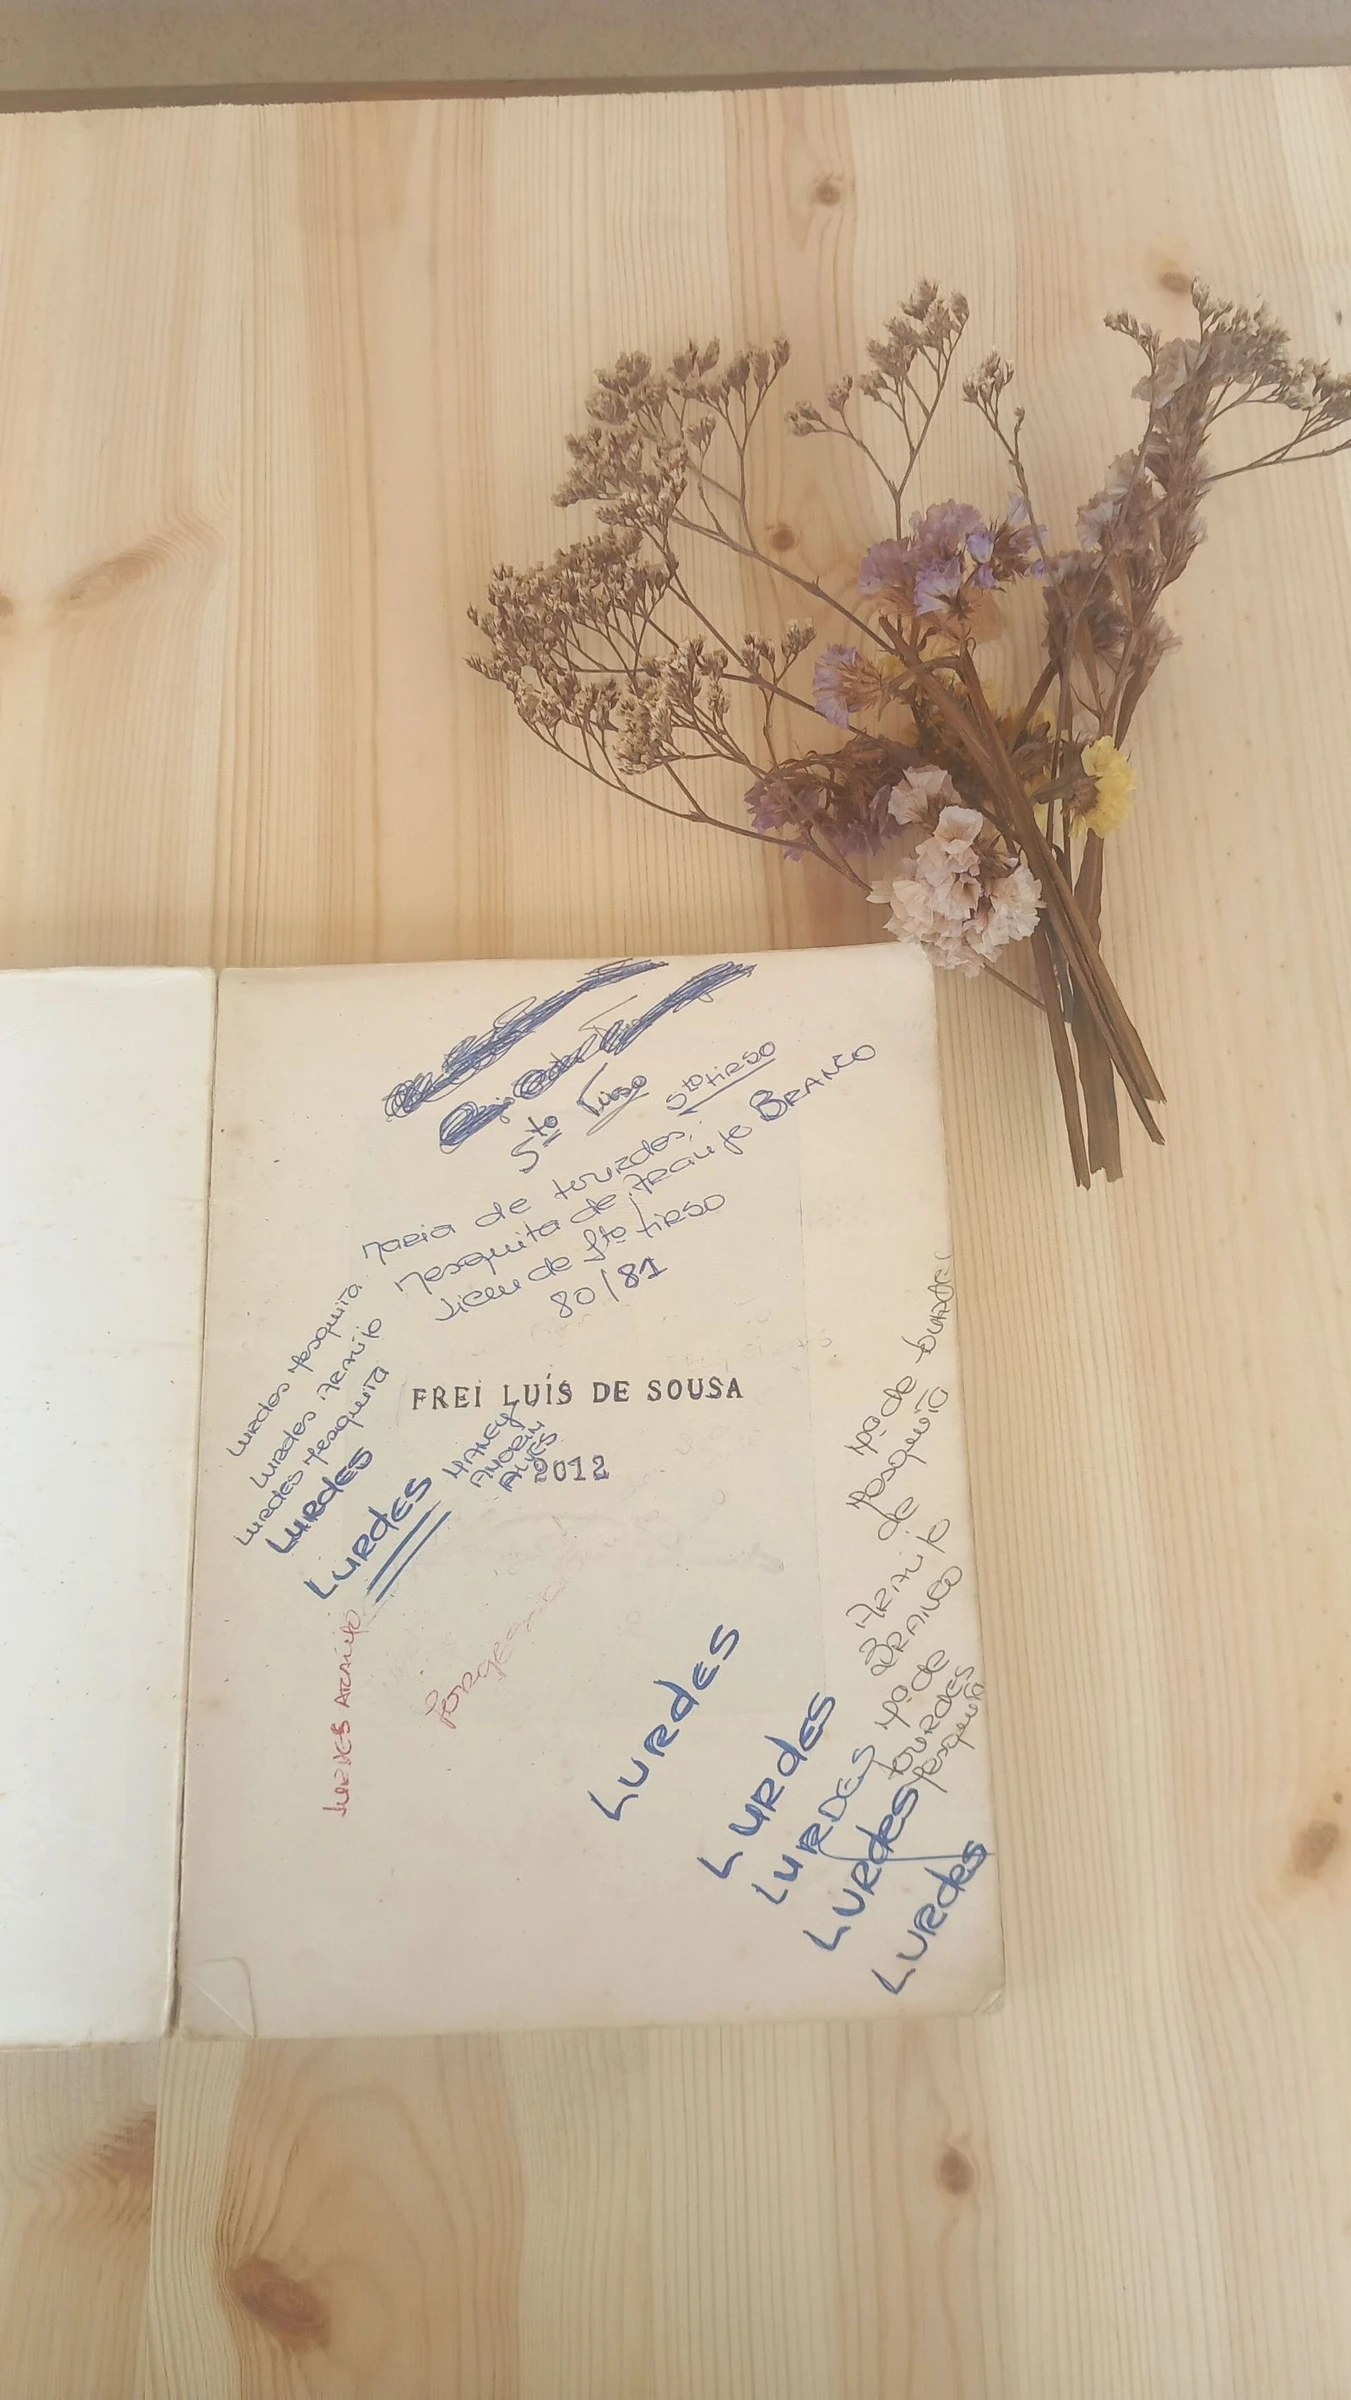 Sto Tirso
Sto Tirso
Maria de Lourdes
Mesquita de Araújo BRANCO
Liceu de Sto Tirso
80/81
Lurdes Mesquita
Lurdes Araújo
Lurdes Mesquita
LURdES
LURdES
FREI LUÍS DE SOUSA
AMORIM
ALVES
2012
LURDES ARAÚJO
Mª de
Mesquita
de
ARAÚJO
BRANCO
Mª de
LOURDES
Mesquita
LURdES
LURdES
LURDES
LURdES
LURdES